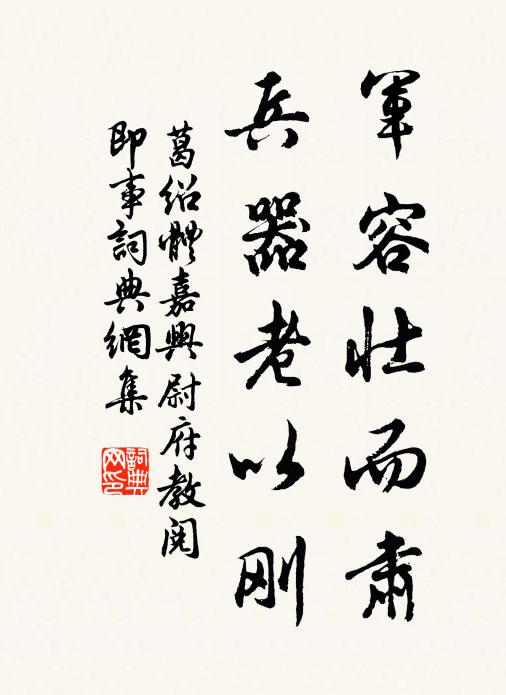 軍容壯而肅
兵器老以刚
葛紹體嘉興尉府教閱
即事詞典網集
詞典网印